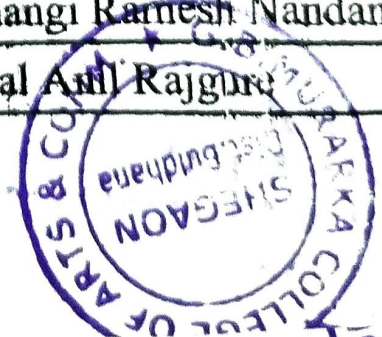 Ramesh Nandan
Anil Rajgure
G.B. MURARKA COLLEGE OF ARTS & COM
SHEGAON
Dist. Buldhana